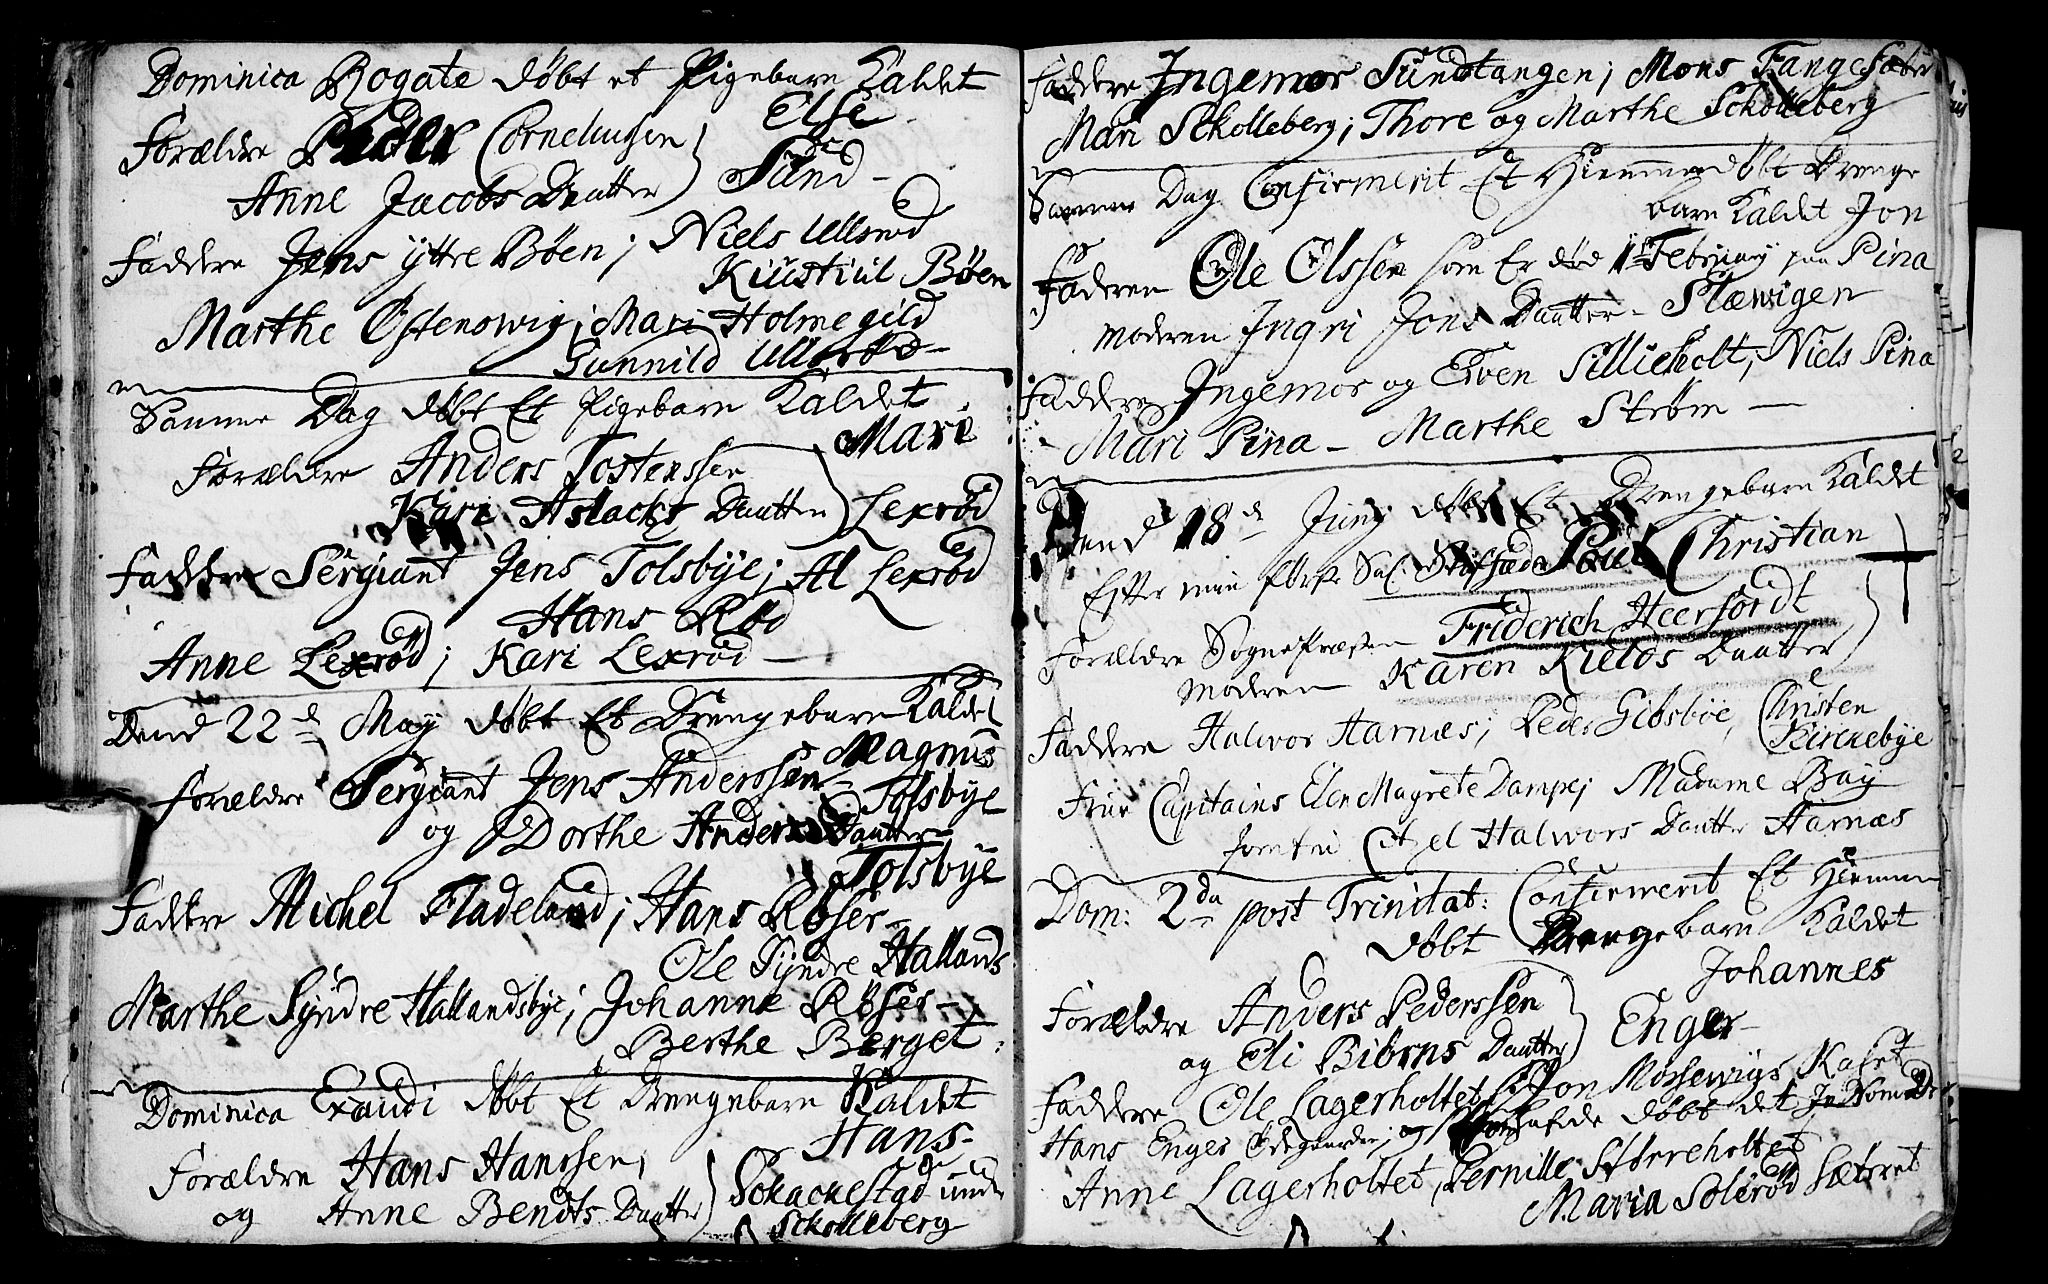 Dominica Rogate døbt et Pigebarn Kaldet
Else
Forældre Peder Corneliusen
Anne Jacobs Daatter
Sand
Faddere Jens yttre Bøen; Niels Ullerød
Kiustiul Bøen
Marthe Østenswig; Mari Holmegild
Gunnild
Samme Dag døbt Et Pigebarn Kaldet
Mari
Forældre Anders Tostenssen
Kari Aslachs Daatter Lexrød
Faddere Sergiant Jens Tolsbye; Al Lexrød
Hans Rød
Anne Lexrød; Kari Lexrød
Dend 22de May døbt Et Drengebarn Kaldet
Magnus
Forældre Sergiant Jens Anderssen
Tolsbye
og Dorthe Anders Daatter
Tolsbye
Faddere Michel Fladeland; Hans Røser
Ole Syndre Hallands
Marthe Syndre Hallandsbye; Johanne Røser
Berthe Berget
Dominica Exaudi døbt Et Drengebarn Kaldet
Hans
Forældre Hans Hanssen,
og Anne Bendts Daatter
Schackestad under
Scholleberg
Faddere Ingemor Sundtangen; Mons Tange
Mari Scholleberg; Thore og Marthe Scholleberg
Samme Dag Confirmerit Et Hiemmedøbt Drenge
barn Kaldet Jon
Faderen Ole Olssen som Er død 1 February paa Pina
moderen Ingri Jons Daatter - Stæwigen
Faddere Ingemor og Even Sillieholt; Niels Pina
Mari Pina - Marthe Strøm
Dend 18de Juny døbt Et Drengebarn Kaldet
Efter min Sal: Poul Christian
Forældre SognePræsten Friderich Heerfordt
moderen Karen Kields Daatter
Faddere Halwor Harnæs; Peder Gibsbøe, Christen
Kirckebye
Frue Capitains Elen Magrete Dampe; Madame Bay
Jomfru Halwors Daatter Harnæs
Dom: 2da post Trinitat: Confirmerit Et Hiemme
døbt Drengebarn Kaldet
Johannes
Forældre Anders Pederssen
og Eli Biørns Daatter
Enger
Faddere Ole Lagerholtet Jon Mossewigs
Hans Enger Ødegaarden; og døbt det
Anne Lagerholtet, Pernille Størreholtet
Maria Solerød Sætret